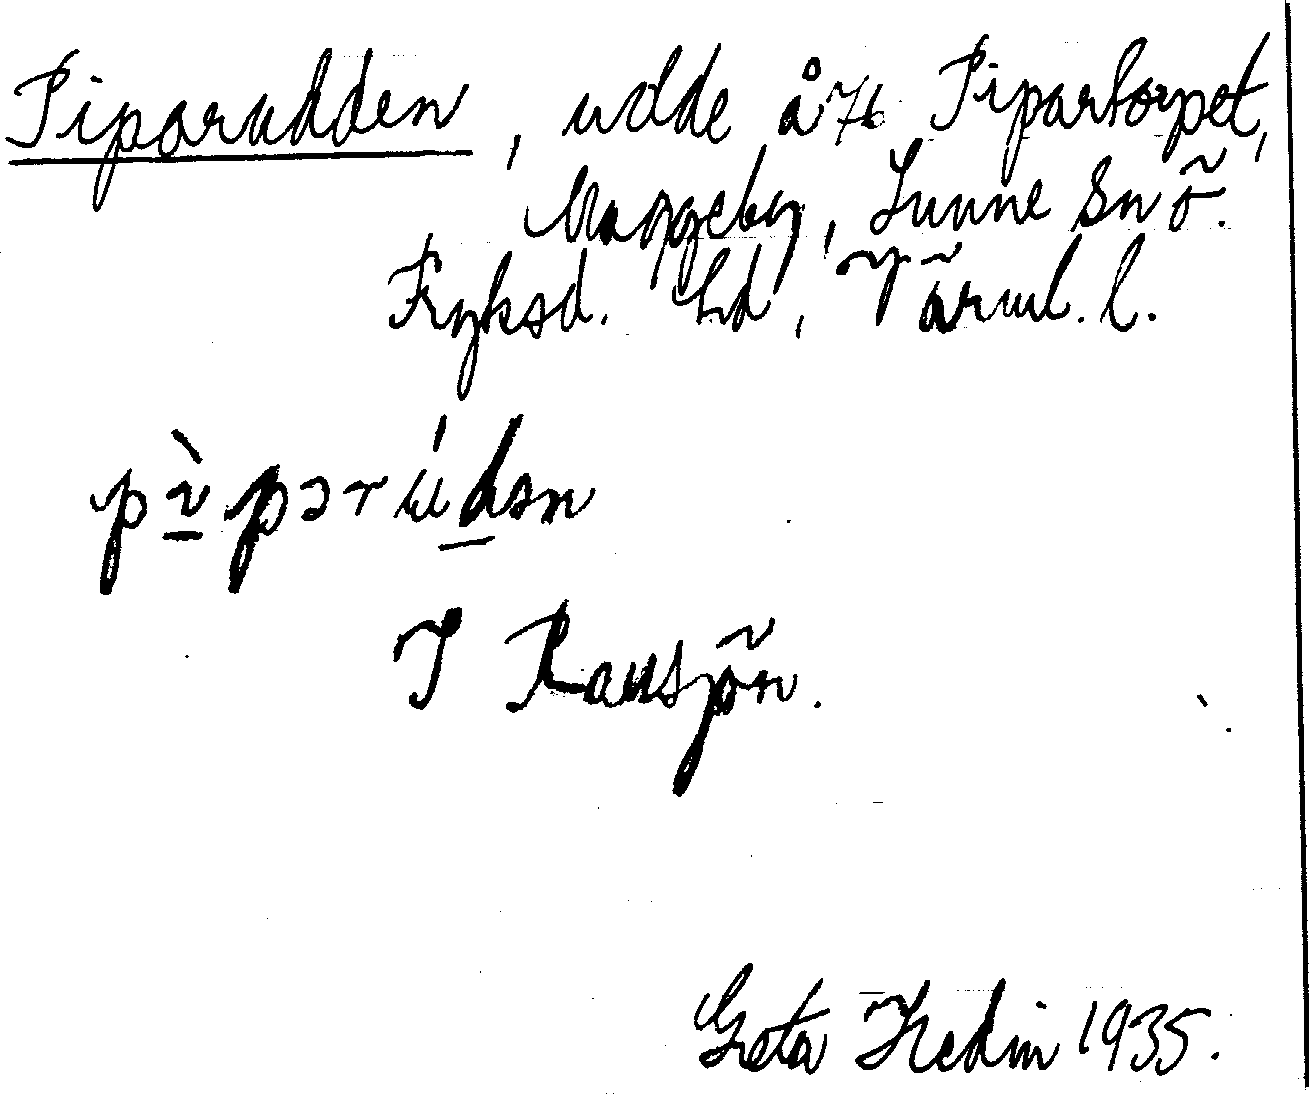 Piparudden, udde å 76 Pipartorpet,
Maggeby, Sunne sn ö.
Fryksd. hd, Värml. l.
pìpərúdən
I Ransjön.
Greta Hedin 1935.